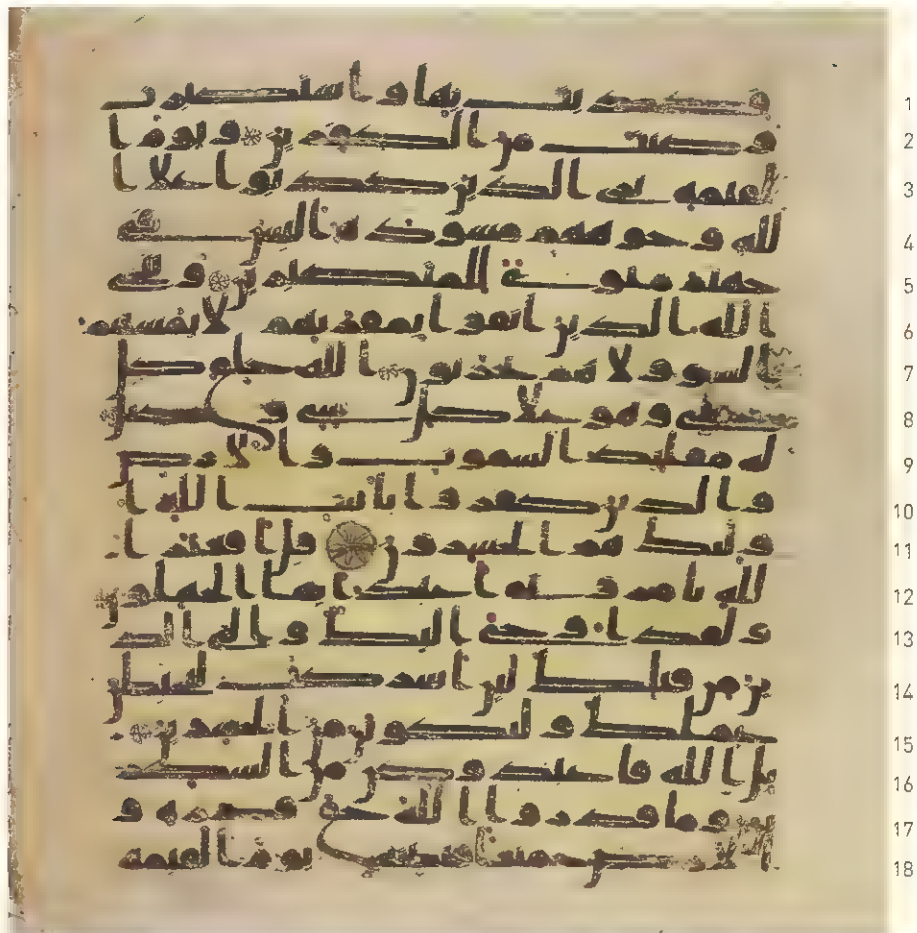 1 فكذبت بها واستكبرت
2 وكنت من الكفرين ويوم ا
3 لقيمة ترى الذين كذبوا على ا
4 لله وجوههم مسودة اليس في
5 جهنم مثوى للمتكبرين وينجي
6 الله الذين اتقوا بمفازتهم لا يمسهم
7 السو ولا هم يحزنون الله خلق كل
8 شي وهو على كل شي وكيل
9 له مقليد السموت والارض
10 والذين كفروا بايت الله ا
11 ولئك هم الخسرون قل افغير ا
12 لله تامروني اعبد ايها الجهلون
13 ولقد اوحي اليك والى الذ
14 ين من قبلك لئن اشركت ليحبطن
15 عملك ولتكونن من الخسرين
16 بل الله فاعبد وكن من الشكر
17 ين وما قدروا الله حق قدره و
18 الارض جميعا قبضته يوم القيمة